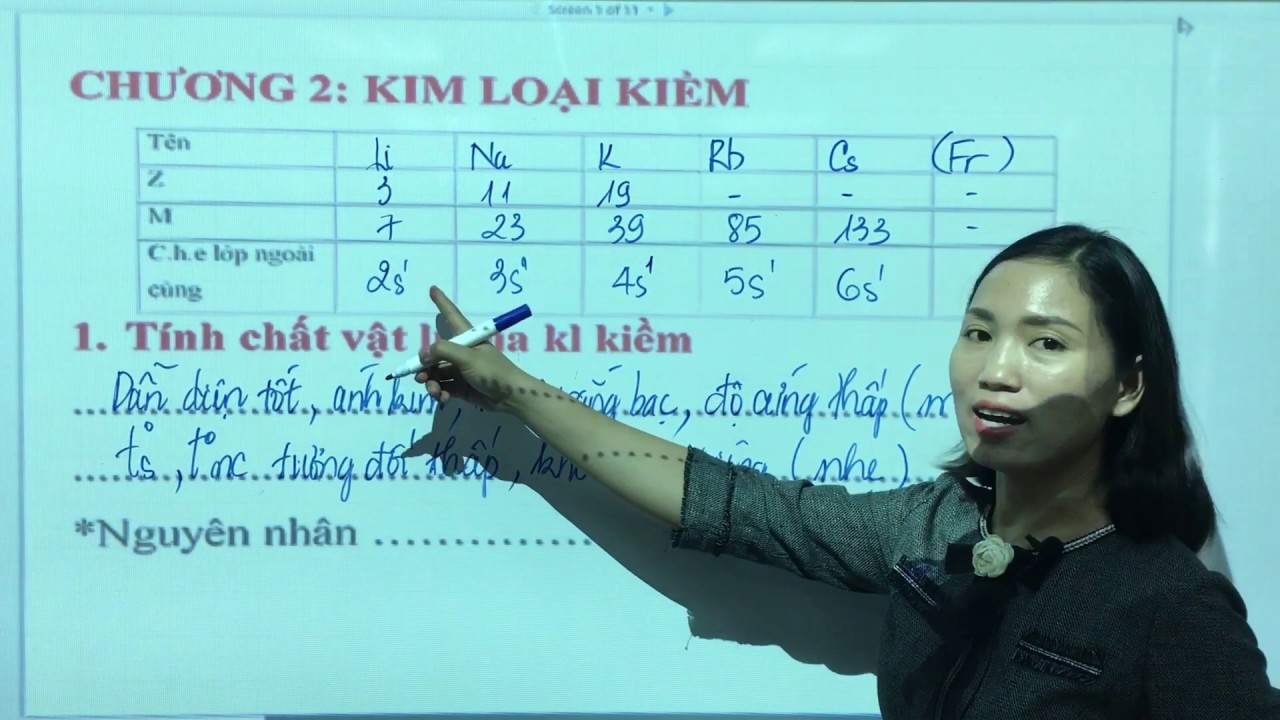 Screen 1 of 11
CHƯƠNG 2: KIM LOẠI KIỀM
Tên Li Na K Rb Cs (Fr)
Z 3 11 19 - - -
M 7 23 39 85 133 -
C.h.e lớp ngoài cùng 2s¹ 3s¹ 4s¹ 5s¹ 6s¹
1. Tính chất vật kl kiềm
Dẫn điện tốt, ánh kim, bạc, độ cứng thấp (m
t°s, t°nc tương đối thấp, (nhẹ)
*Nguyên nhân ..............